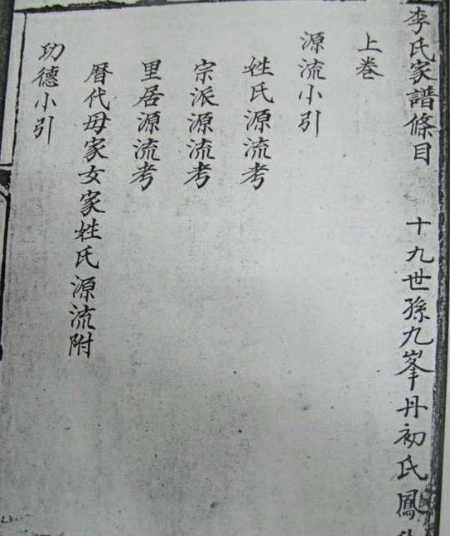 李氏家譜條目 十九世孫九峯丹初氏鳳
上巻
源流小引
姓氏源流考
宗派源流考
里居源流考
曆代母家女家姓氏源流附
功德小引